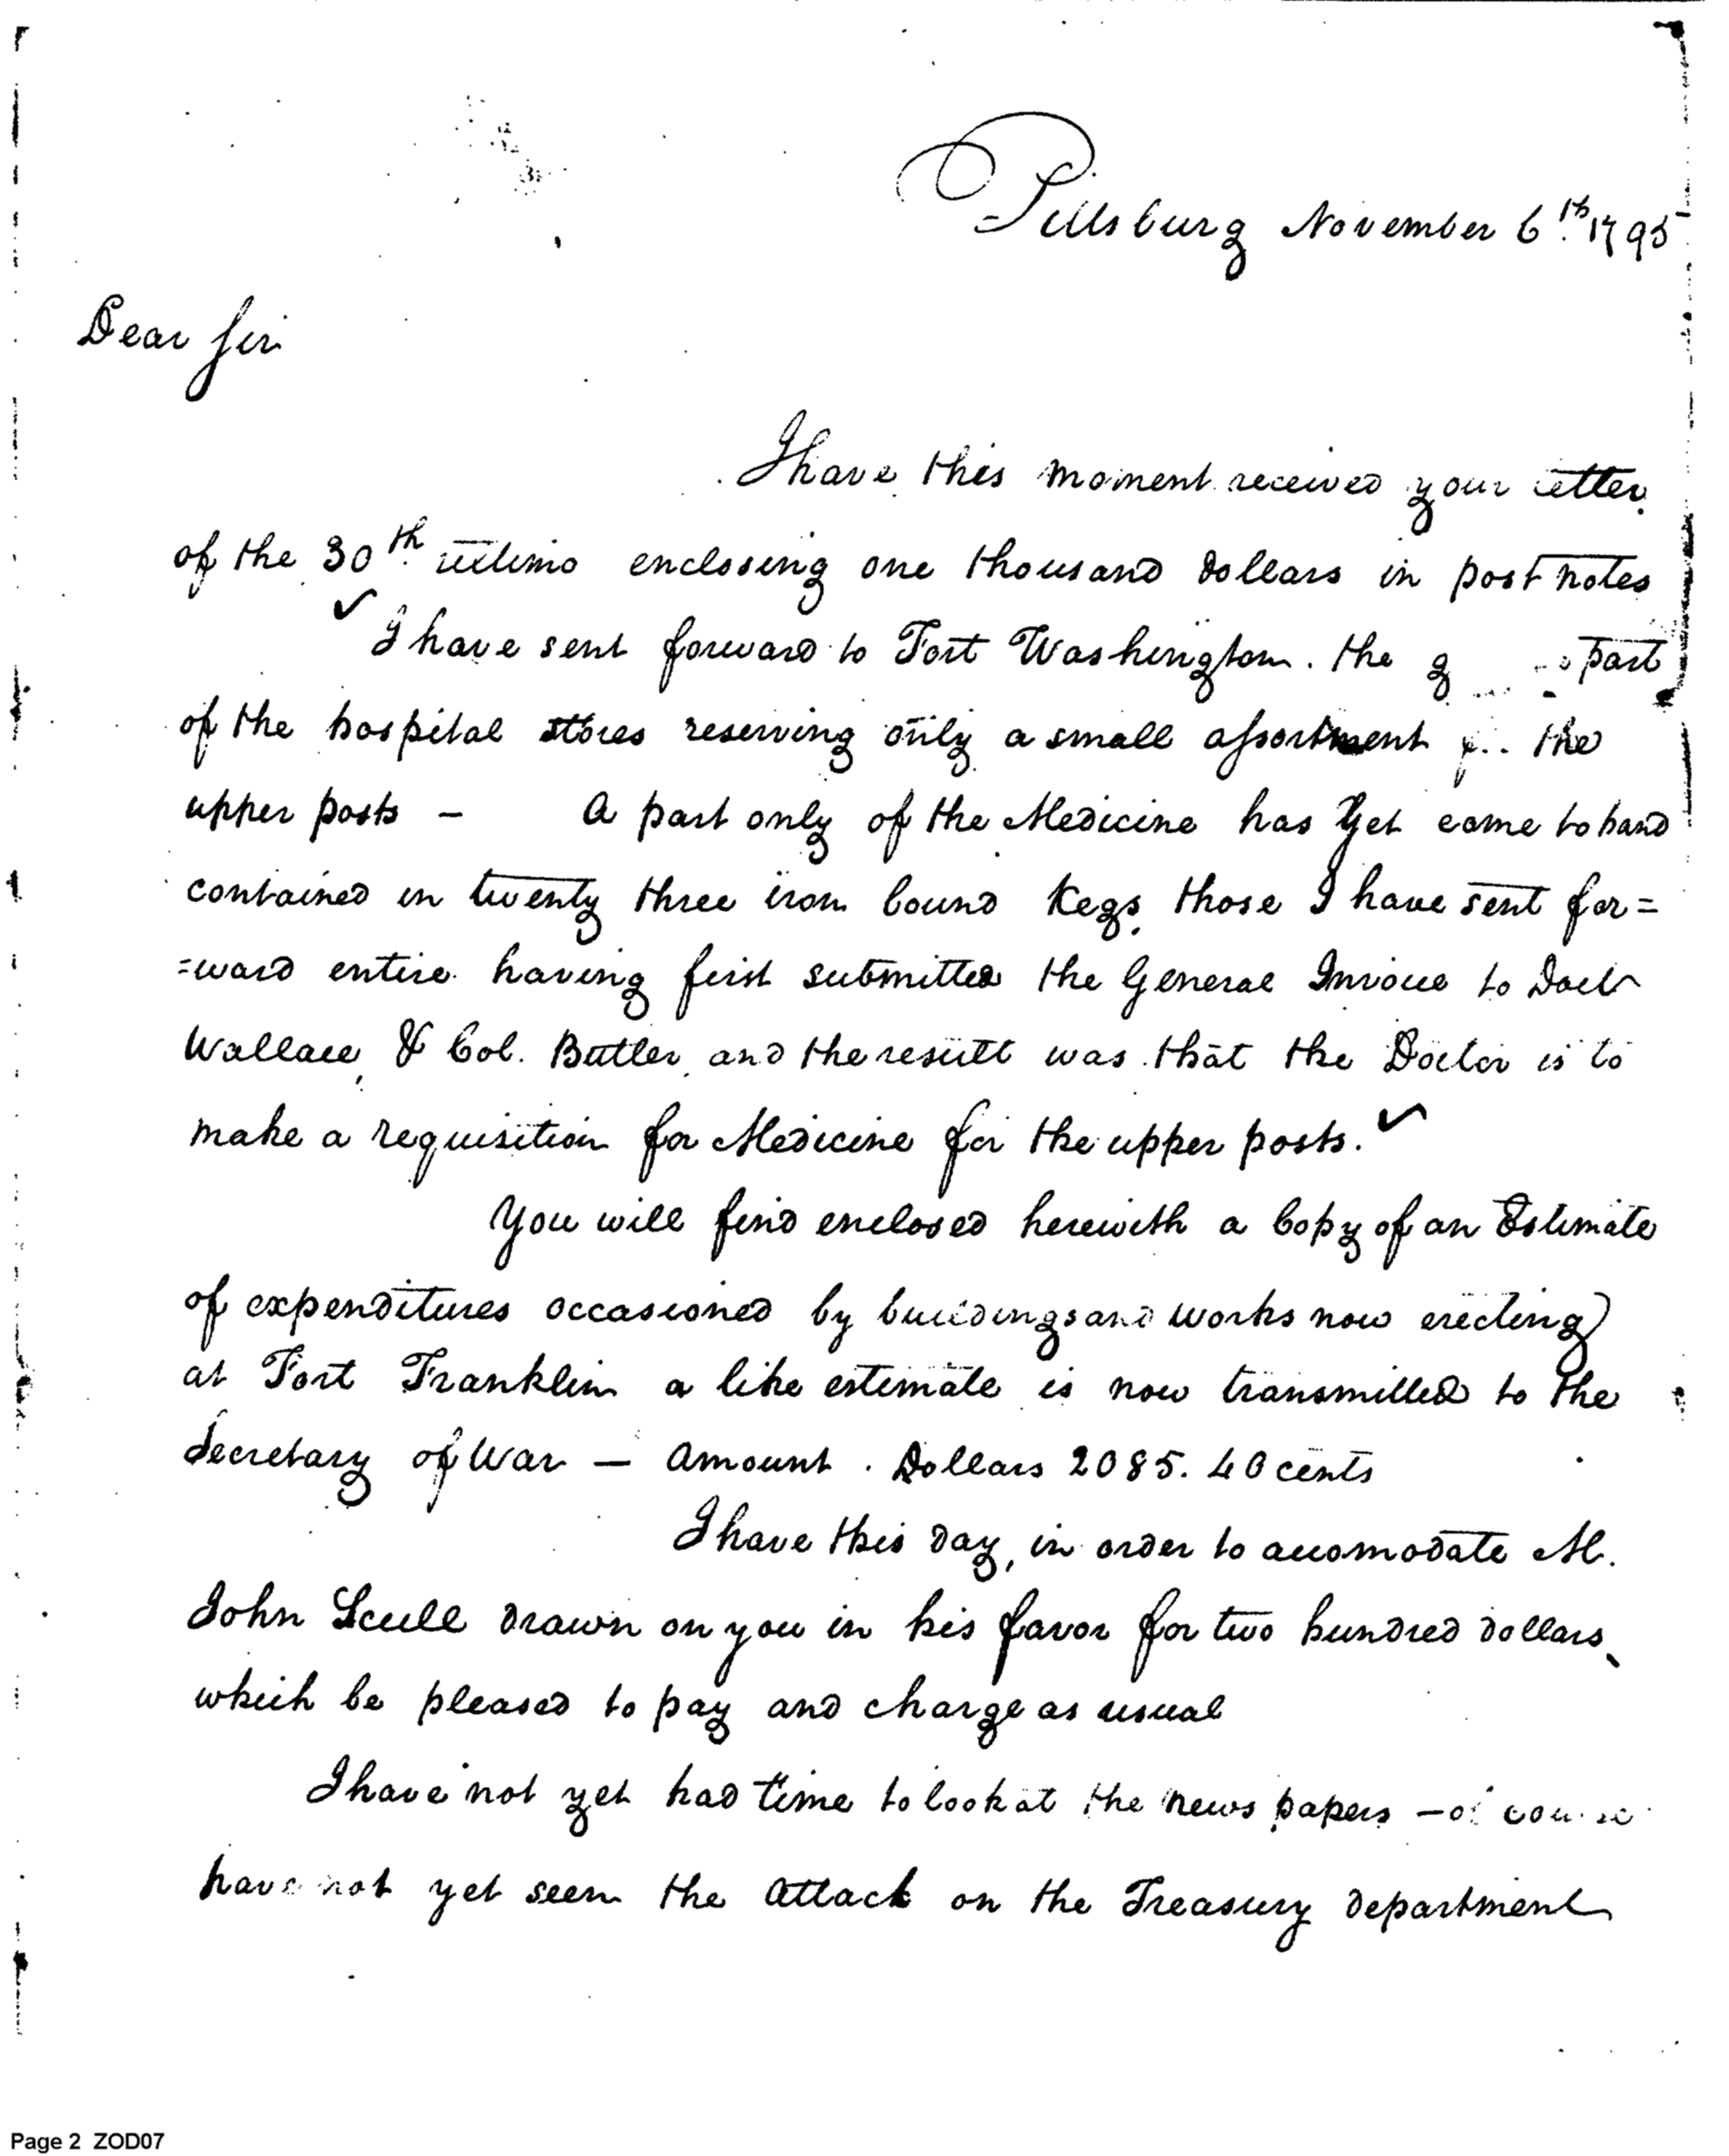 Pittsburg November 6th. 1795
Dear Sir
I have this moment received your letter
of the 30th. ultimo enclosing one thousand dollars in post notes
I have sent forward to Fort Washington. the part
of the hospital stores reserving only a small assortment the
upper posts – A part only of the Medicine has yet come to hand
contained in twenty three iron bound Kegs, those I have sent for=
=ward entire having first submitted the General Invoice to Doctr
Wallace, & Col. Butler, and the result was that the Doctor is to
make a requisition for Medicine for the upper posts.
You will find enclosed herewith a Copy of an Estimate
of expenditures occasioned by buildings and works now erecting
at Fort Franklin a like estimate is now transmitted to the
Secretary of War – Amount . Dollars 2085. 40 cents
I have this day, in order to accomodate M.
John Scull drawn on you in his favor for two hundred dollars,
which be pleased to pay and charge as usual
I have not yet had time to look at the news papers – of course
have not yet seen the attack on the Treasury department
Page 2 ZOD07